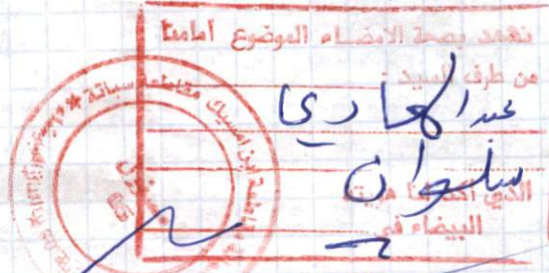 نشهد بصحة الامضاء الموضوع أمامنا
من طرف السيد :
عبد الهادي
سلوان
الذي أكد لنا هويته
البيضاء في
مقاطعة سباتة